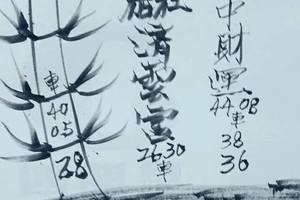 中財運
44 08
車
38
36
福社清雲宮
26 30
車
車
40
05
28